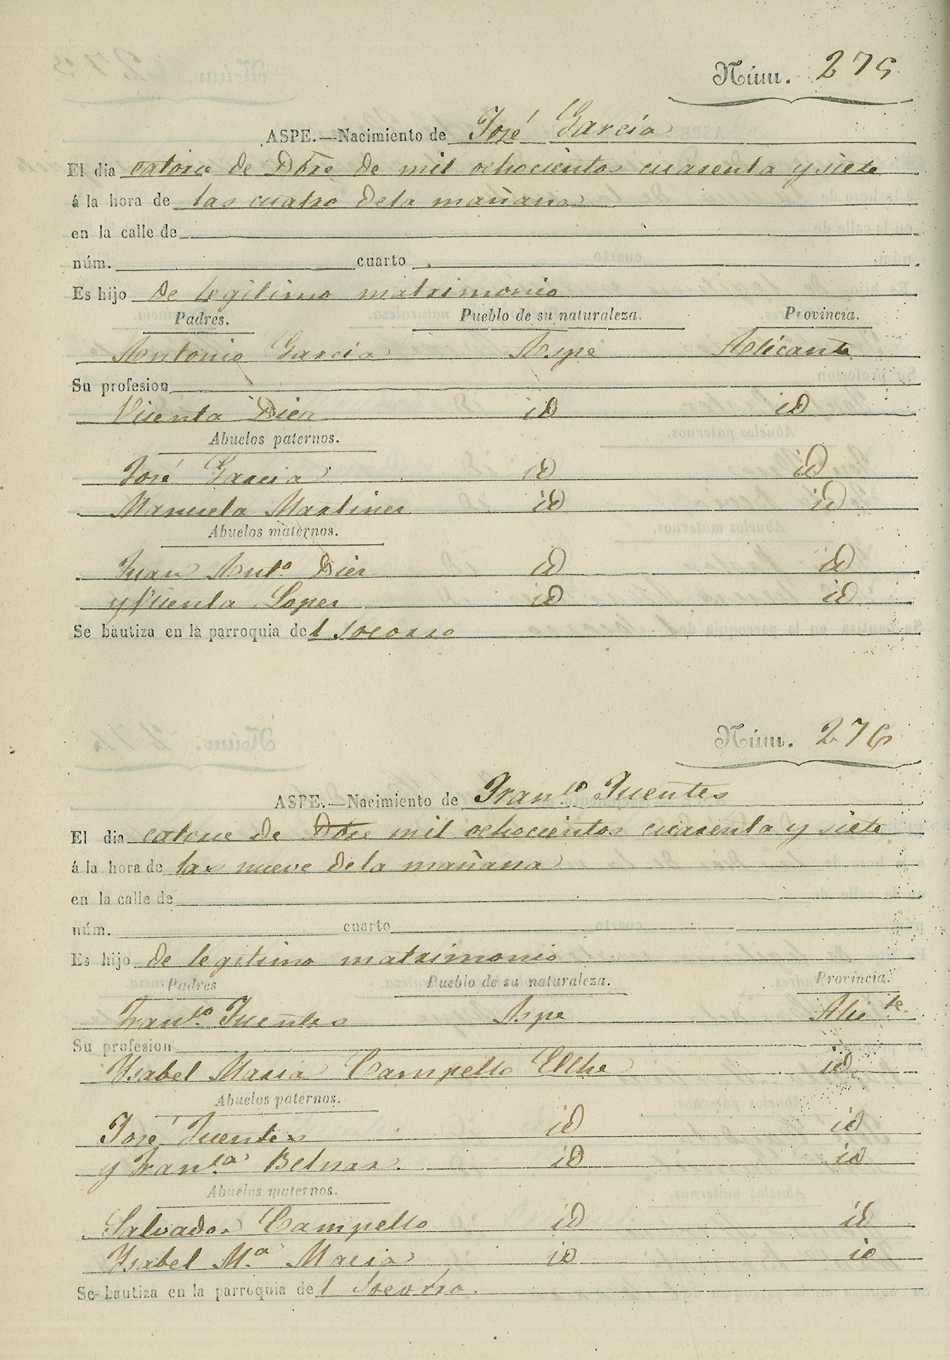 Núm. 275
ASPE.—Nacimiento de José Garcia
El dia catorce de Dbre de mil ochocientos cuarenta y siete
á la hora de las cuatro dela mañana
en la calle de
núm. cuarto
Es hijo de legitimo matrimonio
Padres. Pueblo de su naturaleza. Provincia.
Antonio Garcia Aspe Alicante
Su profesion
Vicenta Dies id id
Abuelos paternos.
José Garcia id id
Manuela Martines id id
Abuelos maternos.
Juan Antº Dies id id
y Vicenta Lopes id id
Se bautiza en la parroquia del Socorro
Núm. 276
ASPE.—Nacimiento de Franco Fuentes
El dia catorce de Dbre mil ochocientos cuarenta y siete
á la hora de las nueve dela mañana
en la calle de
núm. cuarto
Es hijo de legitimo matrimonio
Padres Pueblo de su naturaleza. Provincia.
Franco Fuentes Aspe Alicte
Su profesion
Ysabel Maria Campello Elche id
Abuelos paternos.
José Fuentes id id
y Franca id id
Abuelos maternos.
Salvador Campello id id
Ysabel Mª Macia id id
Se bautiza en la parroquia del Socorro.